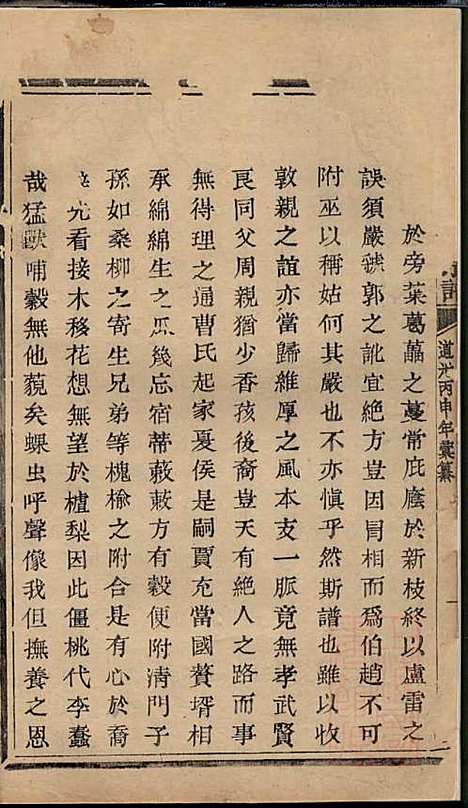 於旁葉葛藟之蔓常庇廕於新枝終以盧雷之
誤須嚴虢郭之訛宜絶方豈因冒相而爲伯趙不可
附巫以稱姑何其嚴也不亦慎乎然斯譜也雖以收
敦親之誼亦當歸維厚之風本支一脈竟無孝武賢
良同父周親猶少香孩後裔豈天有絶人之路而事
無得理之通曹氏起家夏侯是嗣賈充當國贅壻相
承綿綿生之瓜幾忘宿蒂蔌蔌方有穀便附清門子
孫如桑柳之寄生兄弟等槐榆之附合是有心於裔
先看接木移花想無望於樝梨因此僵桃代李蠢
哉猛獸哺穀無他藐矣螟虫呼聲像我但撫養之恩
道光丙申年彙纂
一